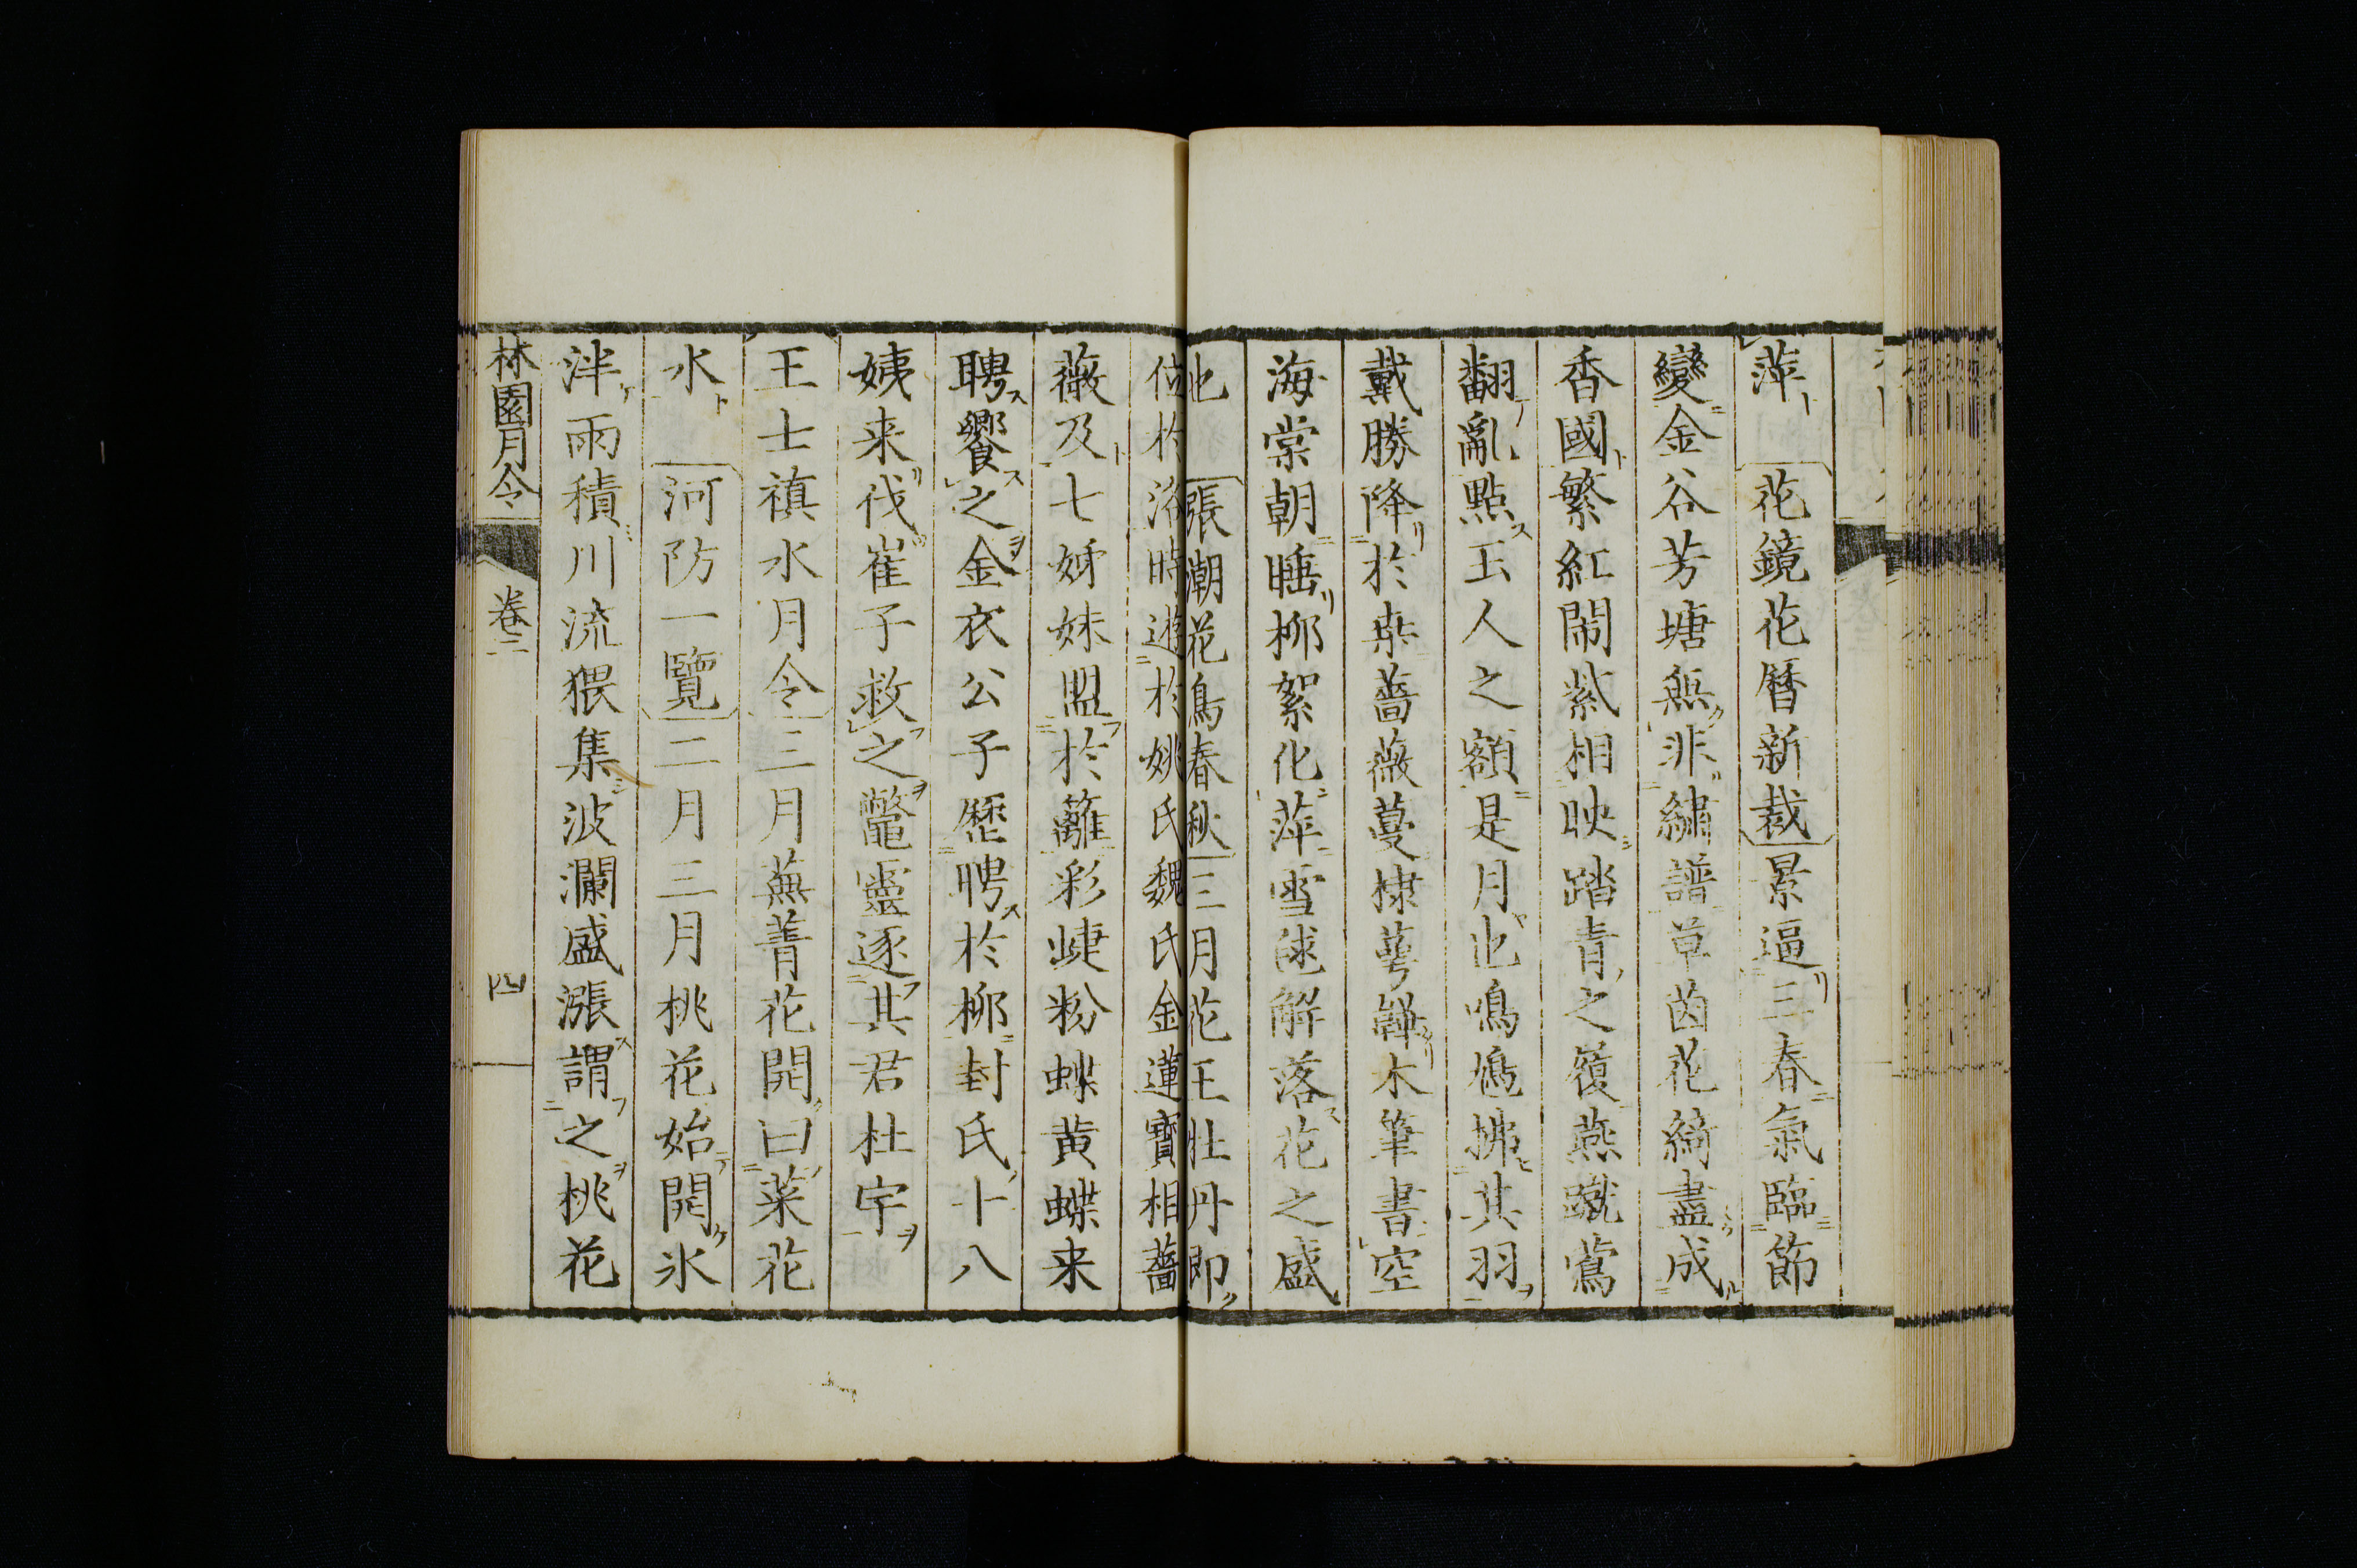 萍 花鏡花曆新裁景逼三春氣臨節
變金谷芳塘無非繡譜草茵花綺盡成
香國繁紅閙紫相映踏青之履燕蹴鶯
翻亂點玉人之額是月也鳴鳩拂其羽
戴勝降於桒薔薇蔓棣萼韡木筆書空
海棠朝睡柳絮化萍雪毬解落花之盛
也 張潮花鳥春秋三月花王牡丹即
位於洛時遊於姚氏魏氏金蓮寳相薔
薇及七姊妹盟於籬彩婕粉蝶黄蝶来
聘饗之金衣公子歷聘於柳封氏十八
姨来伐崔子救之鼈靈逐其君杜宇
王士禛水月令三月蕪菁花開曰菜花
水 河防一覽二月三月桃花始開氷
泮雨積川流猥集波瀾盛漲謂之桃花
林園月令 卷二 四